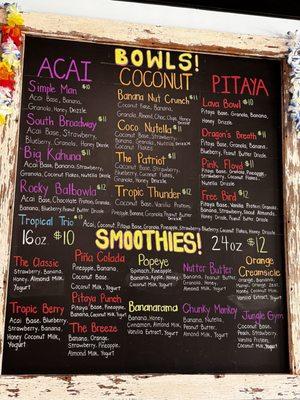 BOWLS!
ACAI
Simple Man $10
Acai Base, Banana,
Granola, Honey Drizzle
South Broadway $11
Acai Base, Strawberry,
Banana, Granola, Honey Drizzle
Big Kahuna $11
Acai Base, Banana, Strawberry,
Granola, Coconut Flakes, Nutella Drizzle
Rocky Balbowla $12
Acai Base, Vanilla Protein, Banana,
COCONUT
Banana Nut Crunch $11
Coconut Base, Banana,
Granola, Almond, Honey
Drizzle
Coco Nutella $11
Coconut Base, Strawberry,
Banana, Granola, Nutella
Drizzle
The Patriot $11
Coconut Base, Strawberry,
Blueberry, Coconut Flakes,
Granola, Honey Drizzle
Tropic Thunder $12
Coconut Base, Vanilla Protein,
Pineapple, Banana, Granola, Peanut Butter Drizzle
PITAYA
Lava Bowl $10
Pitaya Base, Banana,
Granola, Honey Drizzle
Dragon's Breath $11
Pitaya Base, Granola, Banana,
Blueberry, Peanut Butter Drizzle
Pink Floyd $11
Pitaya Base, Granola, Pineapple,
Strawberry, Coconut Flakes,
Nutella Drizzle
Free Bird $12
Pitaya Base, Vanilla Protein, Granola,
Banana, Strawberry, Almonds,
Honey Drizzle, Peanut Butter Drizzle
Tropical Trio $13
Acai Base, Coconut Base, Pitaya Base, Granola, Pineapple, Strawberry, Blueberry, Coconut Flakes, Honey Drizzle
16oz $10
SMOOTHIES!
24oz $12
The Classic
Strawberry, Banana,
Honey, Almond Milk,
Yogurt
Tropic Berry
Acai Base, Blueberry,
Strawberry, Banana,
Honey, Coconut Milk
Yogurt
Piña Colada
Pineapple, Banana,
Coconut Base,
Coconut Milk, Yogurt
Pitaya Punch
Pitaya Base, Pineapple,
Banana, Strawberry,
Coconut Milk, Yogurt
The Breeze
Banana, Orange,
Strawberry, Pineapple,
Almond Milk, Yogurt
Popeye
Spinach, Pineapple,
Banana, Apple, Honey,
Coconut Milk
Bananarama
Banana, Honey,
Cinnamon, Almond Milk,
Vanilla Extract, Yogurt
Nutter Butter
Banana, Peanut
Butter, Granola, Honey,
Almond Milk, Yogurt
Chunky Monkey
Banana, Nutella,
Peanut Butter,
Almond Milk, Yogurt
Orange
Creamsicle
Orange, Banana,
Coconut Milk, Honey,
Vanilla Extract, Yogurt
Jungle Gym
Coconut Base,
Banana,
Peach, Strawberry,
Vanilla Protein,
Coconut Milk, Yogurt